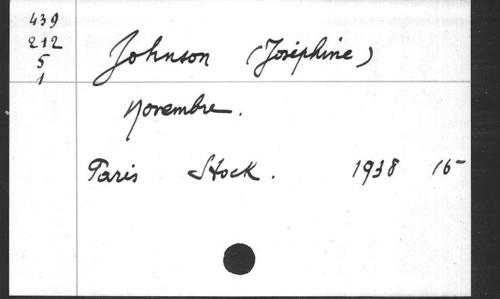 439
212
5
1
Johnson (Joséphine)
Novembre.
Paris Stock. 1938 15